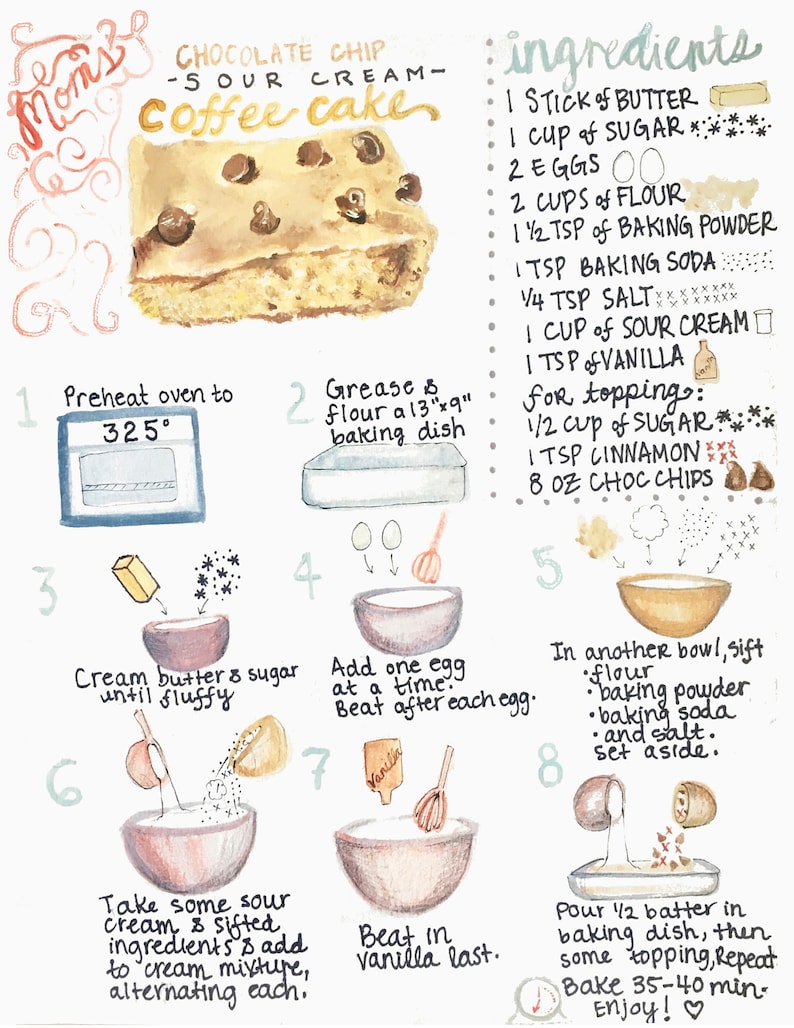 Mom's
CHOCOLATE CHIP
-SOUR CREAM-
coffee cake
ingredients
1 STICK of BUTTER
1 CUP of SUGAR
2 EGGS
2 CUPS of FLOUR
1 1/2 TSP of BAKING POWDER
1 TSP BAKING SODA
1/4 TSP SALT
1 CUP of SOUR CREAM
1 TSP of VANILLA
vanilla
for topping:
1/2 CUP of SUGAR
1 TSP CINNAMON
8 OZ CHOC CHIPS
1
Preheat oven to
325°
2
Grease &
flour a 13"x9"
baking dish
3
Cream butter & sugar
until fluffy
4
Add one egg
at a time.
Beat after each egg.
5
In another bowl, sift
•flour
•baking powder
•baking soda
•and salt.
set aside.
6
Take some sour
cream & sifted
ingredients & add
to cream mixture,
alternating each.
7
Vanilla
Beat in
vanilla last.
8
Pour 1/2 batter in
baking dish, then
some topping, Repeat
Bake 35-40 min.
Enjoy! ♡